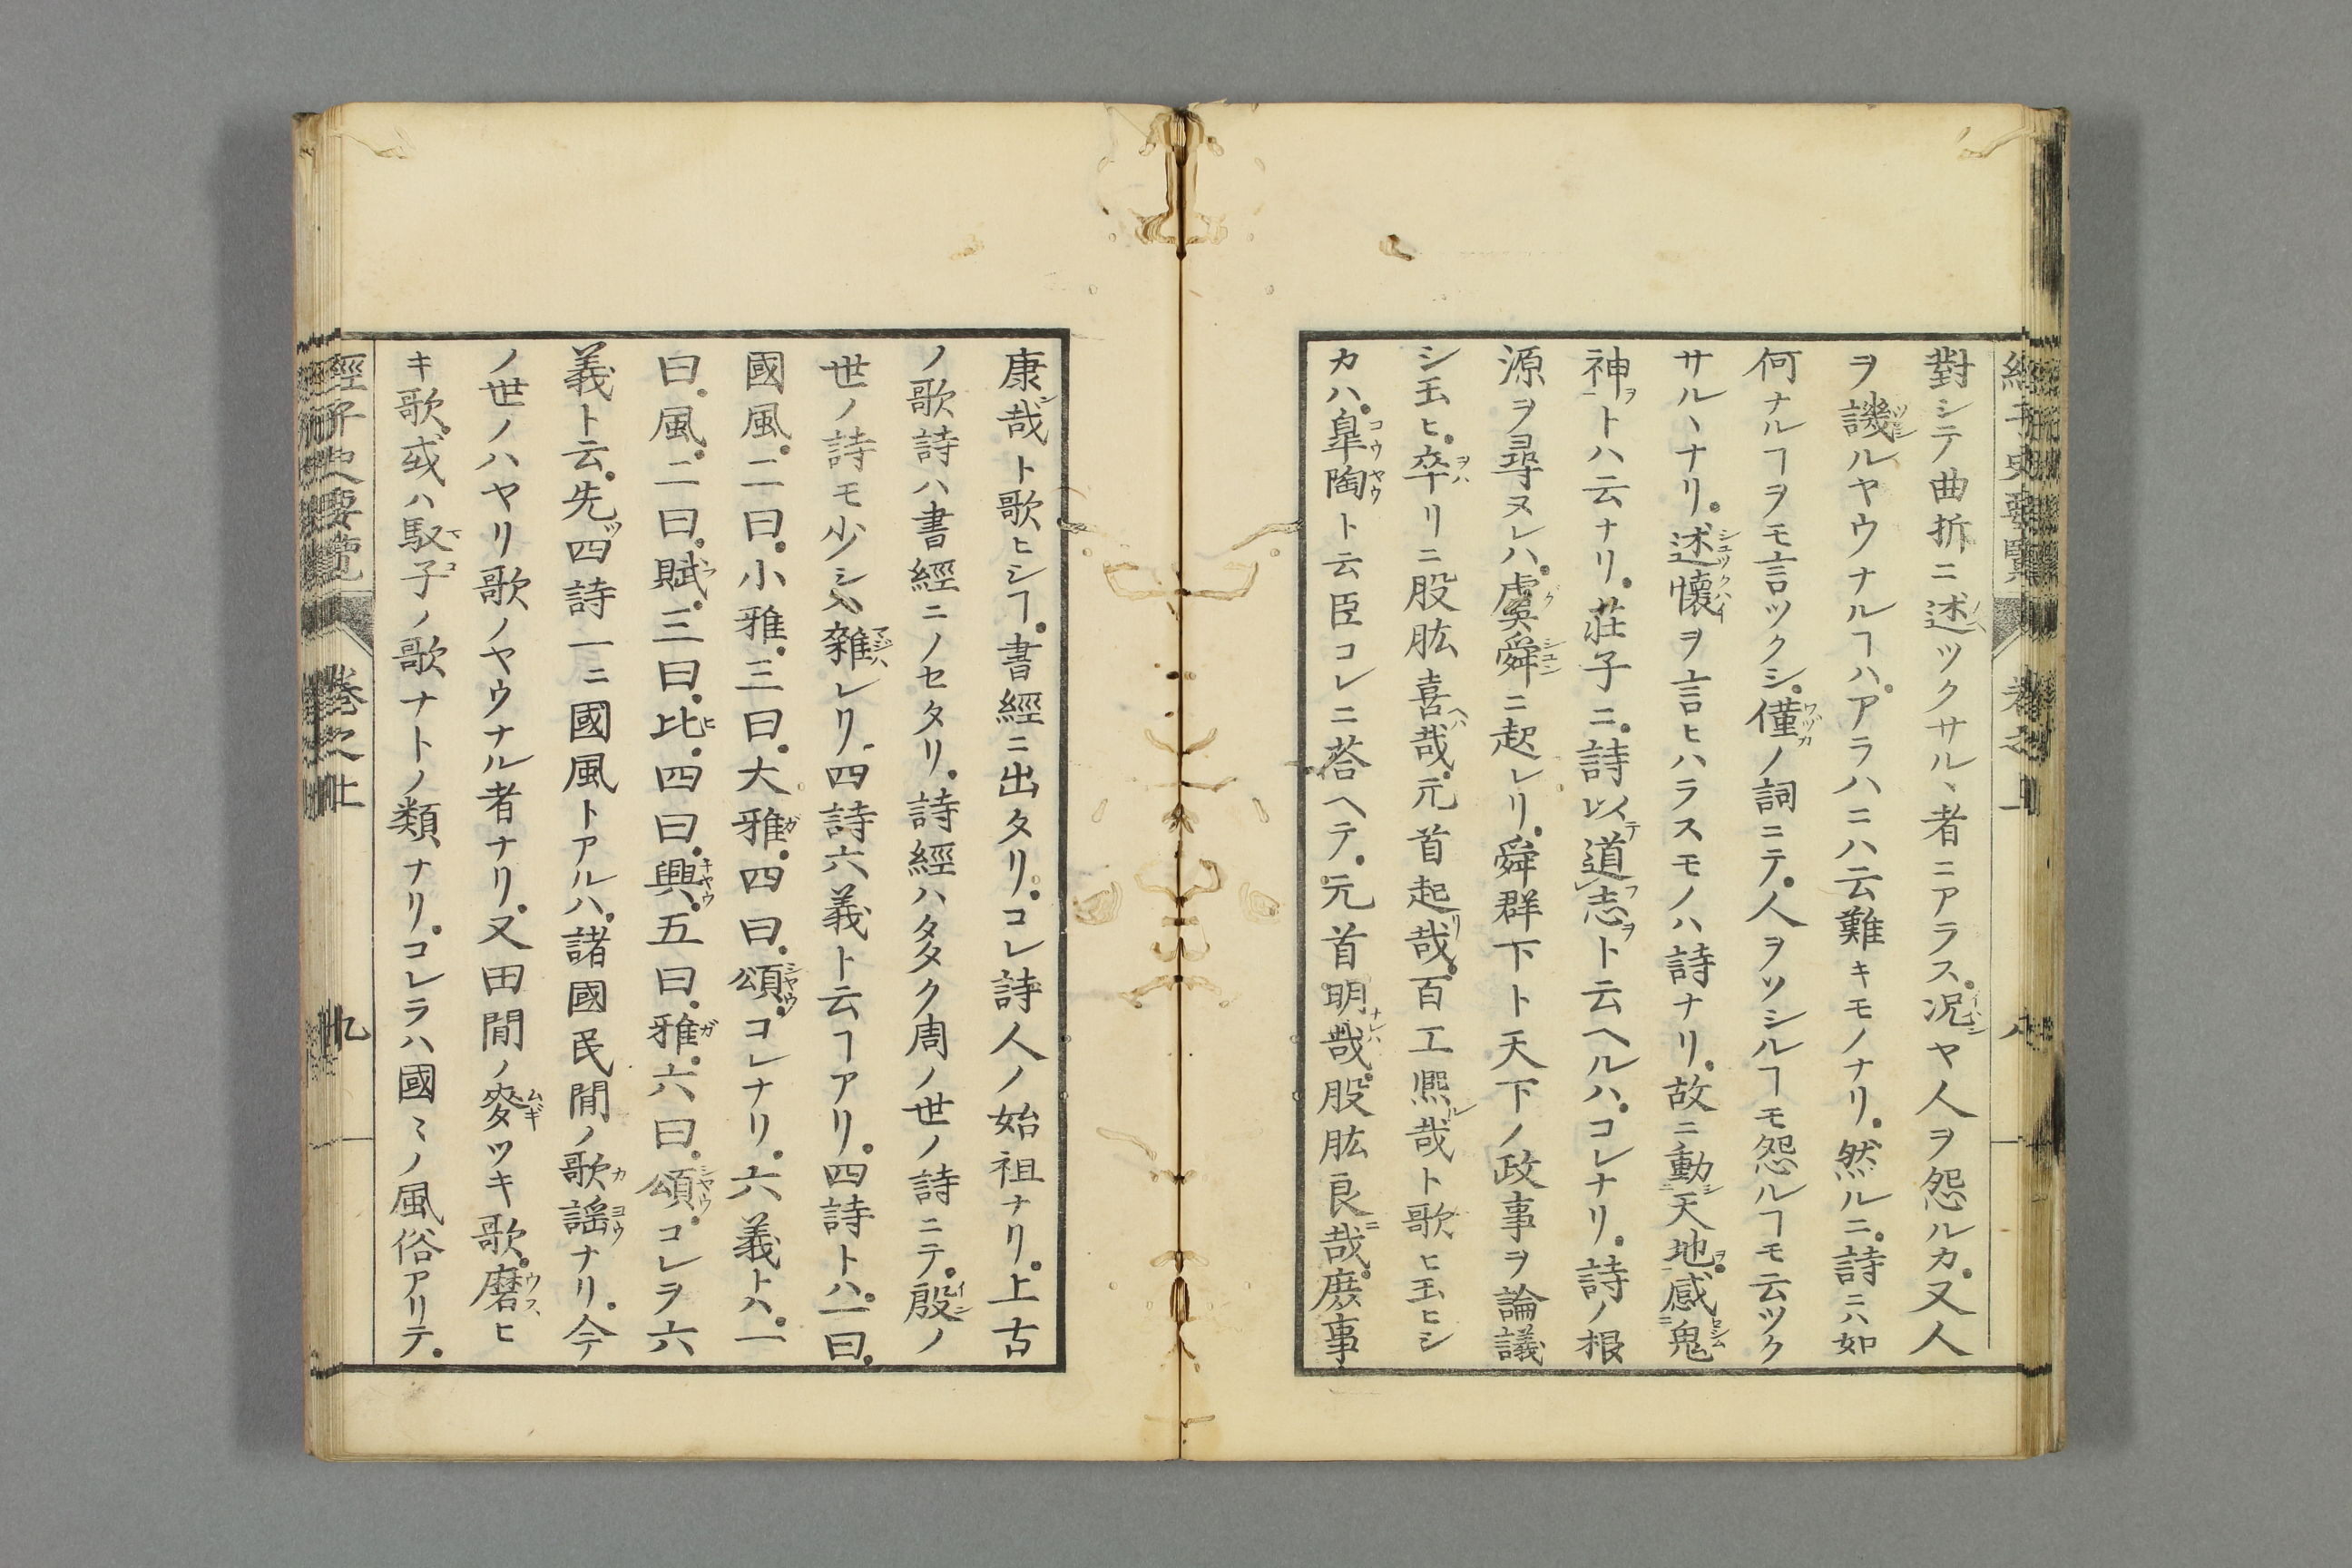 經子史要覽 卷之上 八
對シテ曲折ニ述ツクサル、者ニアラス。況ヤ人ヲ怨ルカ。又人
ヲ譏ルヤウナルヿハ。アラハニハ云難キモノナリ。然ルニ。詩ニハ如
何ナルヿヲモ言ツクシ。僅ノ詞ニテ。人ヲソシルヿモ怨ルヿモ云ツク
サル、ナリ。述懷ヲ言ヒハラスモノハ詩ナリ。故ニ動天地。感鬼
神トハ云ナリ。莊子ニ。詩以道志ト云ヘルハ。コレナリ。詩ノ根
源ヲ尋ヌレハ。虞舜ニ起レリ。舜群下ト天下ノ政事ヲ論議
シ玉ヒ。卒リニ股肱喜哉。元首起哉。百工熙哉ト歌ヒ玉ヒシ
カハ。皐陶ト云臣コレニ荅ヘテ。元首明哉。股肱良哉。庶事
康哉ト歌ヒシヿ。書經ニ出タリ。コレ詩人ノ始祖ナリ。上古
ノ歌詩ハ書經ニノセタリ。詩經ハ多ク周ノ世ノ詩ニテ。殷ノ
世ノ詩モ少シ雜レリ。四詩六義ト云ヿアリ。四詩トハ。一曰。
國風。二曰。小雅。三曰。大雅。四曰。頌。コレナリ。六義トハ。一
曰。風。二曰。賦。三曰。比。四曰。興。五曰。雅。六曰。頌。コレヲ六
義ト云。先四詩一ニ國風トアルハ。諸國民間ノ歌謡ナリ。今
ノ世ノハヤリ歌ノヤウナル者ナリ。又田間ノ麥ツキ歌。磨ヒ
キ歌。或ハ馭子ノ歌ナトノ類ナリ。コレラハ國〻ノ風俗アリテ。
經子史要覽 卷之上 九